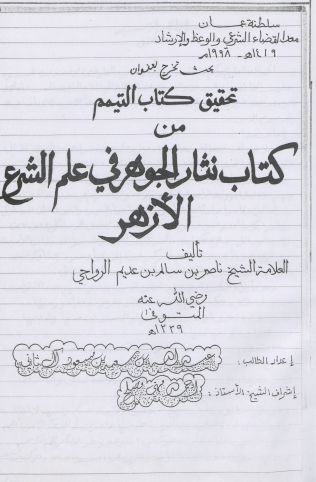 سلطنة عمان
معهد القضاء الشرعي والوعظ والإرشاد
١٤١٩هـ - ١٩٩٨م
بحث تخرج بعنوان
تحقيق كتاب التيمم
من
كتاب نثار الجوهر في علم الشرع
الأزهر
تأليف
العلامة الشيخ ناصر بن سالم بن عديم الرواحي
رضي الله عنه
المتوفى
١٣٣٩هـ
إعداد الطالب : عبدالله بن سعيد بن مسعود آل ثاني
إشراف الشيخ الأستاذ :